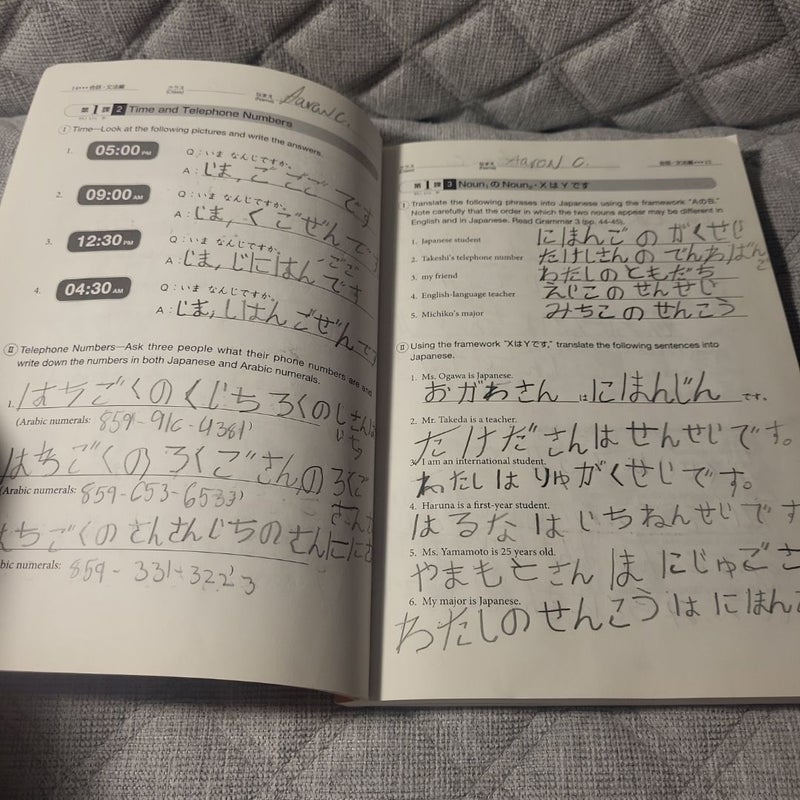 会話・文法編
クラス
(Class)
なまえ
(Name)
Aaron C.
第1課 2 Time and Telephone Numbers
I Time—Look at the following pictures and write the answers.
1. 05:00 PM
Q：いま なんじですか。
A：じま, ごごごです
2. 09:00 AM
Q：いま なんじですか。
A：じま, くごぜんです
3. 12:30 PM
Q：いま なんじですか。
ごご
A：じま, じにはんです
4. 04:30 AM
Q：いま なんじですか。
A：じま, しはんごぜんです
II Telephone Numbers—Ask three people what their phone numbers are and
write down the numbers in both Japanese and Arabic numerals.
1. はちごくのくじちろくのしさんは
じち
(Arabic numerals: 859-916-4381)
はちごくのろくごさんのろくご
さんさ
(Arabic numerals: 859-653-6533)
はちごくのさんさんじちのさんにに
bic numerals: 859-331-3223
クラス
(Class)
なまえ
(Name)
Aaron C.
会話・文法編
第1課 3 Noun₁ の Noun₂・XはYです
I Translate the following phrases into Japanese using the framework "AのB."
Note carefully that the order in which the two nouns appear may be different in
English and in Japanese. Read Grammar 3 (pp. 44-45).
1. Japanese student にほんごの がくせじ
2. Takeshi's telephone number たけしさんの でんわばんご
3. my friend わたしのともだち
4. English-language teacher えじごの せんせじ
5. Michiko's major みちこの せんこう
II Using the framework "XはYです," translate the following sentences into
Japanese.
1. Ms. Ogawa is Japanese.
おがわさん は にほんじん です。
2. Mr. Takeda is a teacher.
たけださんは せんせじです。
3. I am an international student.
わたしは りゅがくせじです。
4. Haruna is a first-year student.
はるなは じちねんせじです
5. Ms. Yamamoto is 25 years old.
やまもとさん は にじゅごさ
6. My major is Japanese.
わたしのせんこう は にほんご